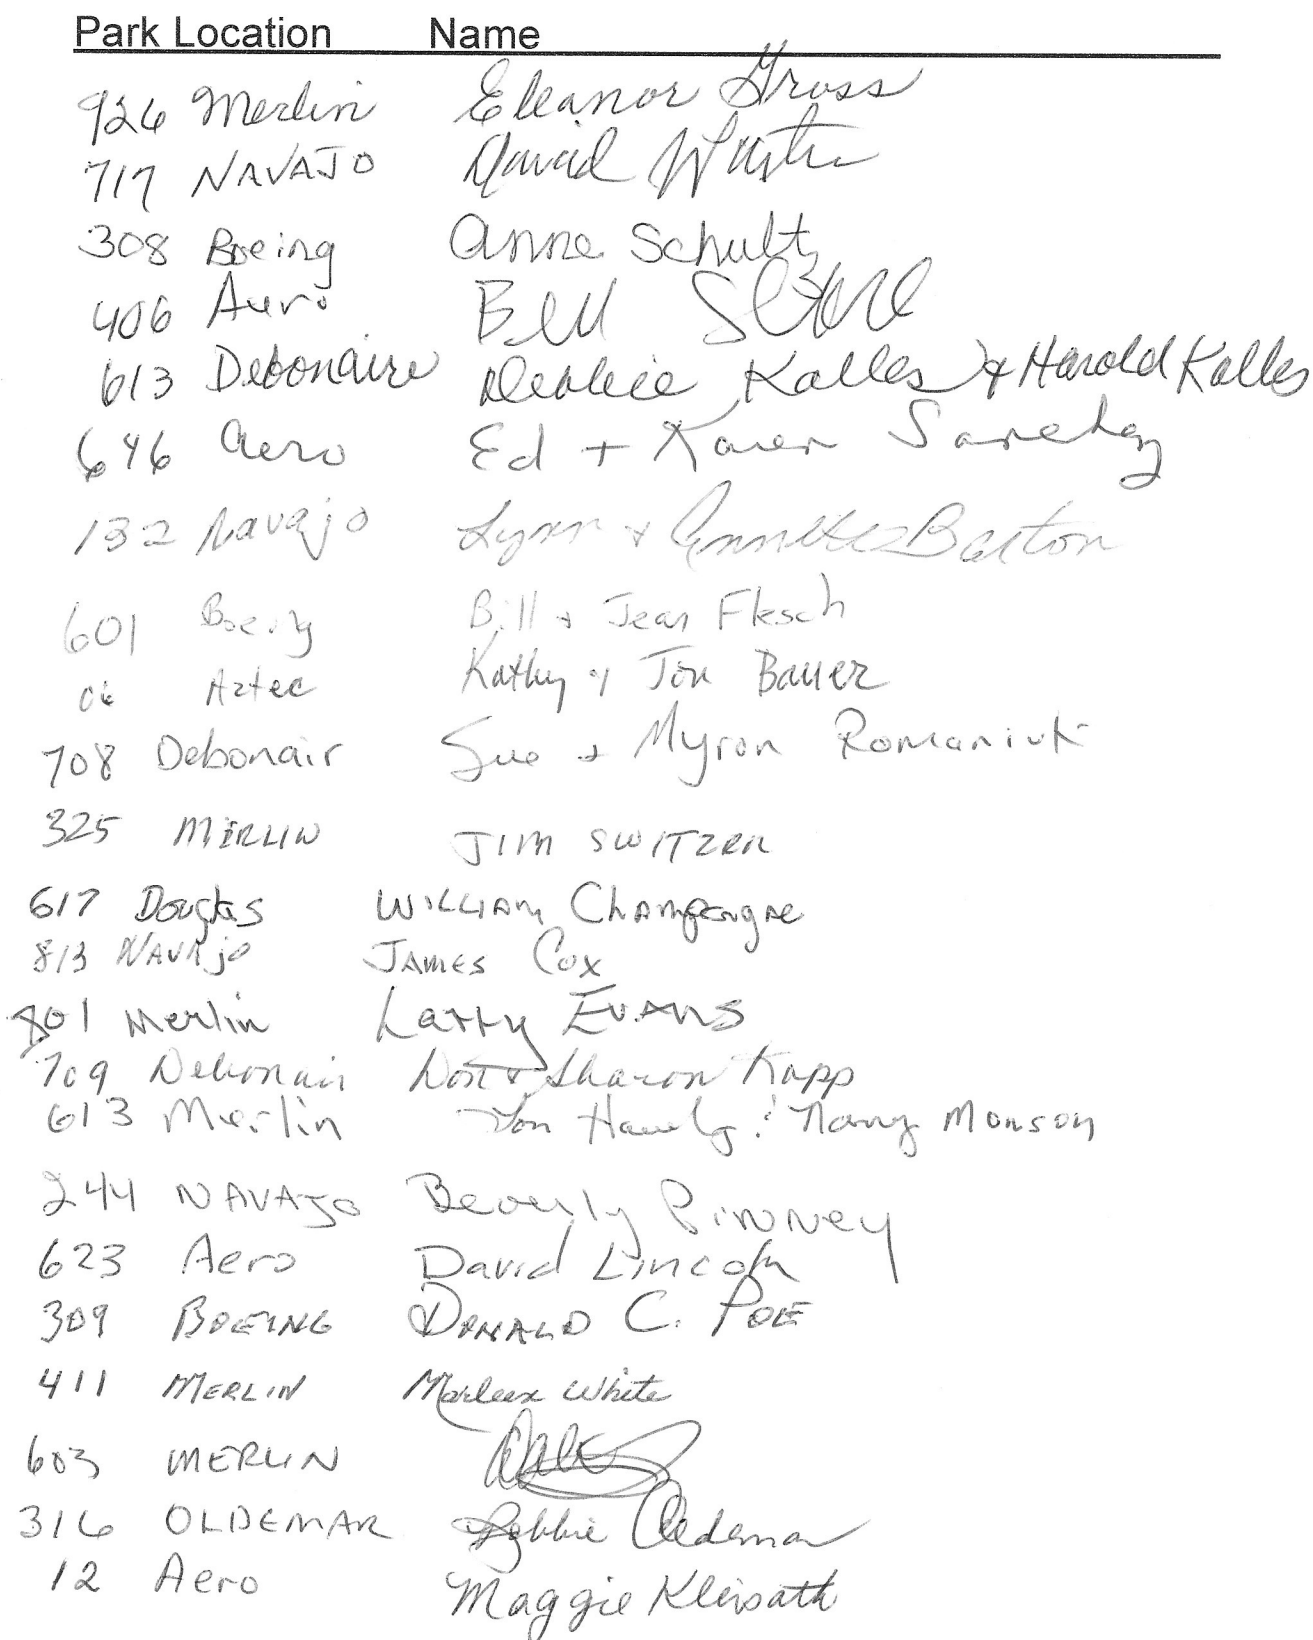 Park Location Name
926 Merlin Eleanor Gross
717 NAVAJO David
308 Boeing Anne Schultz
406 Aero Bill
613 Debonaire Debbie Kalles & Harold Kalles
646 Aero Ed + Karen
132 Navajo Lynn + Annette Barton
601 Boeing Bill + Jean Flesch
06 Aztec Kathy & Jon Bauer
708 Debonair Sue + Myron Romaniuk
325 MERLIN JIM SWITZER
617 Douglas WILLIAM Champagne
813 NAVAjo JAMES Cox
801 Merlin Larry EVANS
709 Debonair Don & Sharon Kapp
613 Merlin Nancy Monson
244 NAVAJO Beverly PINNey
623 Aero David Lincoln
309 BOEING DONALD C. POE
411 MERLIN White
603 MERLIN
316 OLDEMAR Debbie
12 Aero Maggie